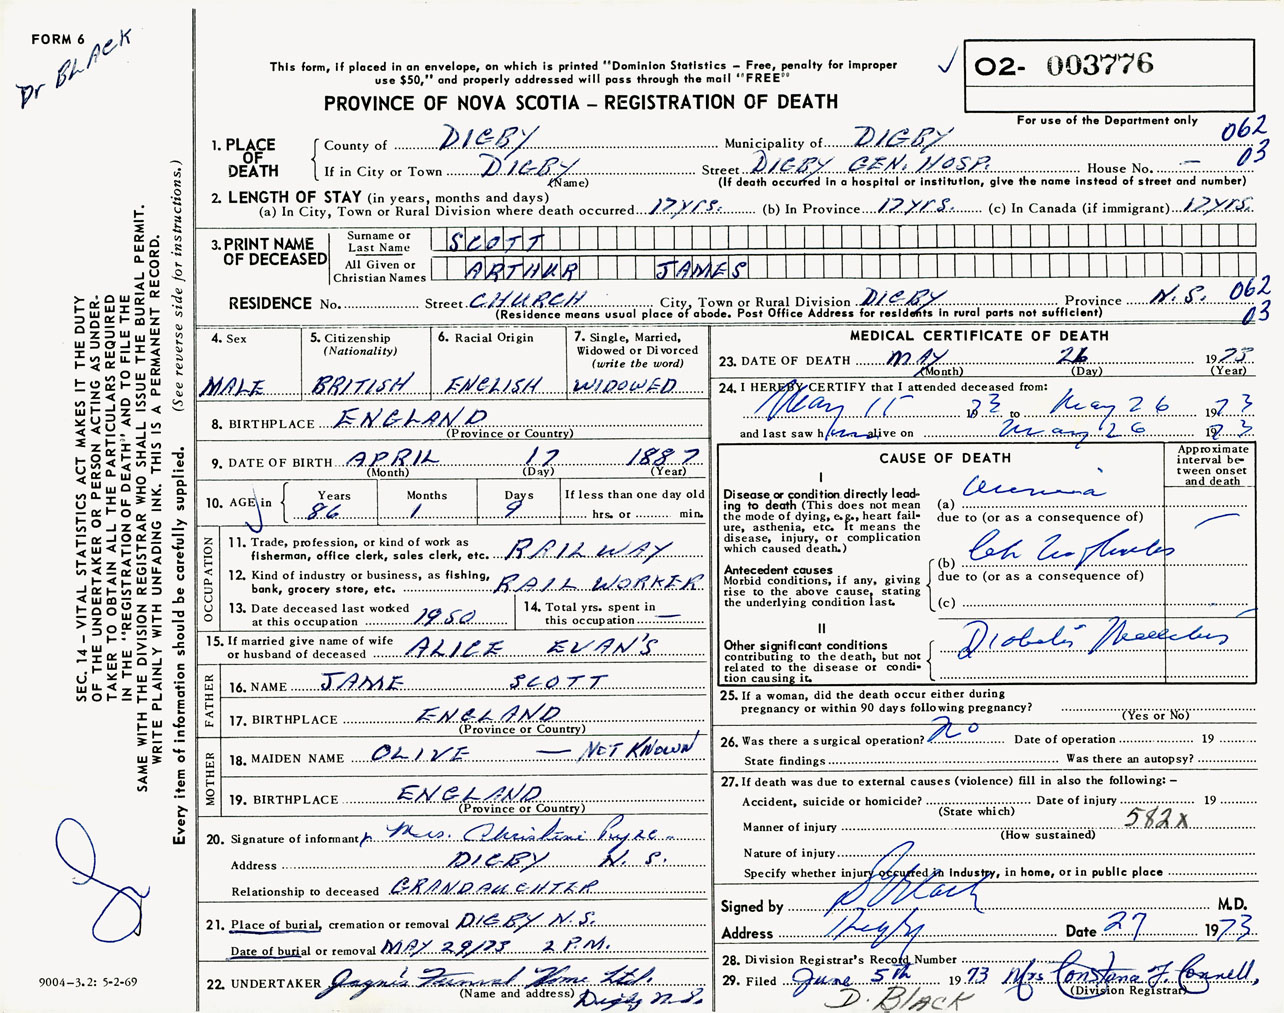 FORM 6
Dr BLACK
This form, if placed in an envelope, on which is printed "Dominion Statistics – Free, penalty for improper
use $50," and properly addressed will pass through the mail "FREE"
PROVINCE OF NOVA SCOTIA – REGISTRATION OF DEATH
✓ O2- 003776
For use of the Department only
062
03
1. PLACE OF DEATH
County of DIGBY Municipality of DIGBY
If in City or Town DIGBY Street DIGBY GEN. HOSP. House No. –
(Name) (If death occurred in a hospital or institution, give the name instead of street and number)
2. LENGTH OF STAY (in years, months and days)
(a) In City, Town or Rural Division where death occurred 17 YRS. (b) In Province 17 YRS. (c) In Canada (if immigrant) 17 YRS.
3. PRINT NAME OF DECEASED
Surname or Last Name SCOTT
All Given or Christian Names ARTHUR JAMES
RESIDENCE No. Street CHURCH City, Town or Rural Division DIGBY Province N.S. 062
(Residence means usual place of abode. Post Office Address for residents in rural parts not sufficient) 03
4. Sex
MALE
5. Citizenship (Nationality)
BRITISH
6. Racial Origin
ENGLISH
7. Single, Married, Widowed or Divorced (write the word)
WIDOWED
8. BIRTHPLACE ENGLAND
(Province or Country)
9. DATE OF BIRTH APRIL 17 1887
(Month) (Day) (Year)
10. AGE in Years Months Days If less than one day old
86 1 9 hrs. or min.
OCCUPATION
11. Trade, profession, or kind of work as
fisherman, office clerk, sales clerk, etc. RAILWAY
12. Kind of industry or business, as fishing,
bank, grocery store, etc. RAIL WORKER
13. Date deceased last worked
at this occupation 1950
14. Total yrs. spent in
this occupation —
15. If married give name of wife
or husband of deceased ALICE EVAN'S
FATHER
16. NAME JAME SCOTT
17. BIRTHPLACE ENGLAND
(Province or Country)
MOTHER
18. MAIDEN NAME OLIVE — NOT KNOWN
19. BIRTHPLACE ENGLAND
(Province or Country)
20. Signature of informant Mrs. Christine
Address DIGBY N.S.
Relationship to deceased GRANDAUGHTER
21. Place of burial, cremation or removal DIGBY N.S.
Date of burial or removal MAY 29/73 2 P.M.
22. UNDERTAKER Funeral Home Ltd.
(Name and address) Digby N.S.
MEDICAL CERTIFICATE OF DEATH
23. DATE OF DEATH MAY 26 1973
(Month) (Day) (Year)
24. I HEREBY CERTIFY that I attended deceased from:
May 15 1973 to May 26 1973
and last saw him alive on May 26 1973
CAUSE OF DEATH
Approximate interval be-
tween onset
and death
I
Disease or condition directly lead-
ing to death (This does not mean
the mode of dying, e.g., heart fail-
ure, asthenia, etc. It means the
disease, injury, or complication
which caused death.)
(a) uremia
due to (or as a consequence of)
Antecedent causes
Morbid conditions, if any, giving
rise to the above cause, stating
the underlying condition last.
(b)
due to (or as a consequence of)
(c)
II
Other significant conditions
contributing to the death, but not
related to the disease or condi-
tion causing it.
Diabetes Mellitus
25. If a woman, did the death occur either during
pregnancy or within 90 days following pregnancy?
(Yes or No)
26. Was there a surgical operation? no Date of operation 19
State findings Was there an autopsy?
27. If death was due to external causes (violence) fill in also the following: –
Accident, suicide or homicide? Date of injury 19
(State which)
Manner of injury 582x
(How sustained)
Nature of injury
Specify whether injury occurred in Industry, in home, or in public place
Signed by M.D.
Address Digby Date 27 1973
28. Division Registrar's Record Number
29. Filed June 5th 1973 Mrs Constance F. Connell,
(Division Registrar)
D. BLACK
SEC. 14 – VITAL STATISTICS ACT MAKES IT THE DUTY
OF THE UNDERTAKER OR PERSON ACTING AS UNDER-
TAKER TO OBTAIN ALL THE PARTICULARS REQUIRED
IN THE "REGISTRATION OF DEATH" AND TO FILE THE
SAME WITH THE DIVISION REGISTRAR WHO SHALL ISSUE THE BURIAL PERMIT.
WRITE PLAINLY WITH UNFADING INK. THIS IS A PERMANENT RECORD.
Every item of information should be carefully supplied. (See reverse side for instructions.)
9004-3.2: 5-2-69